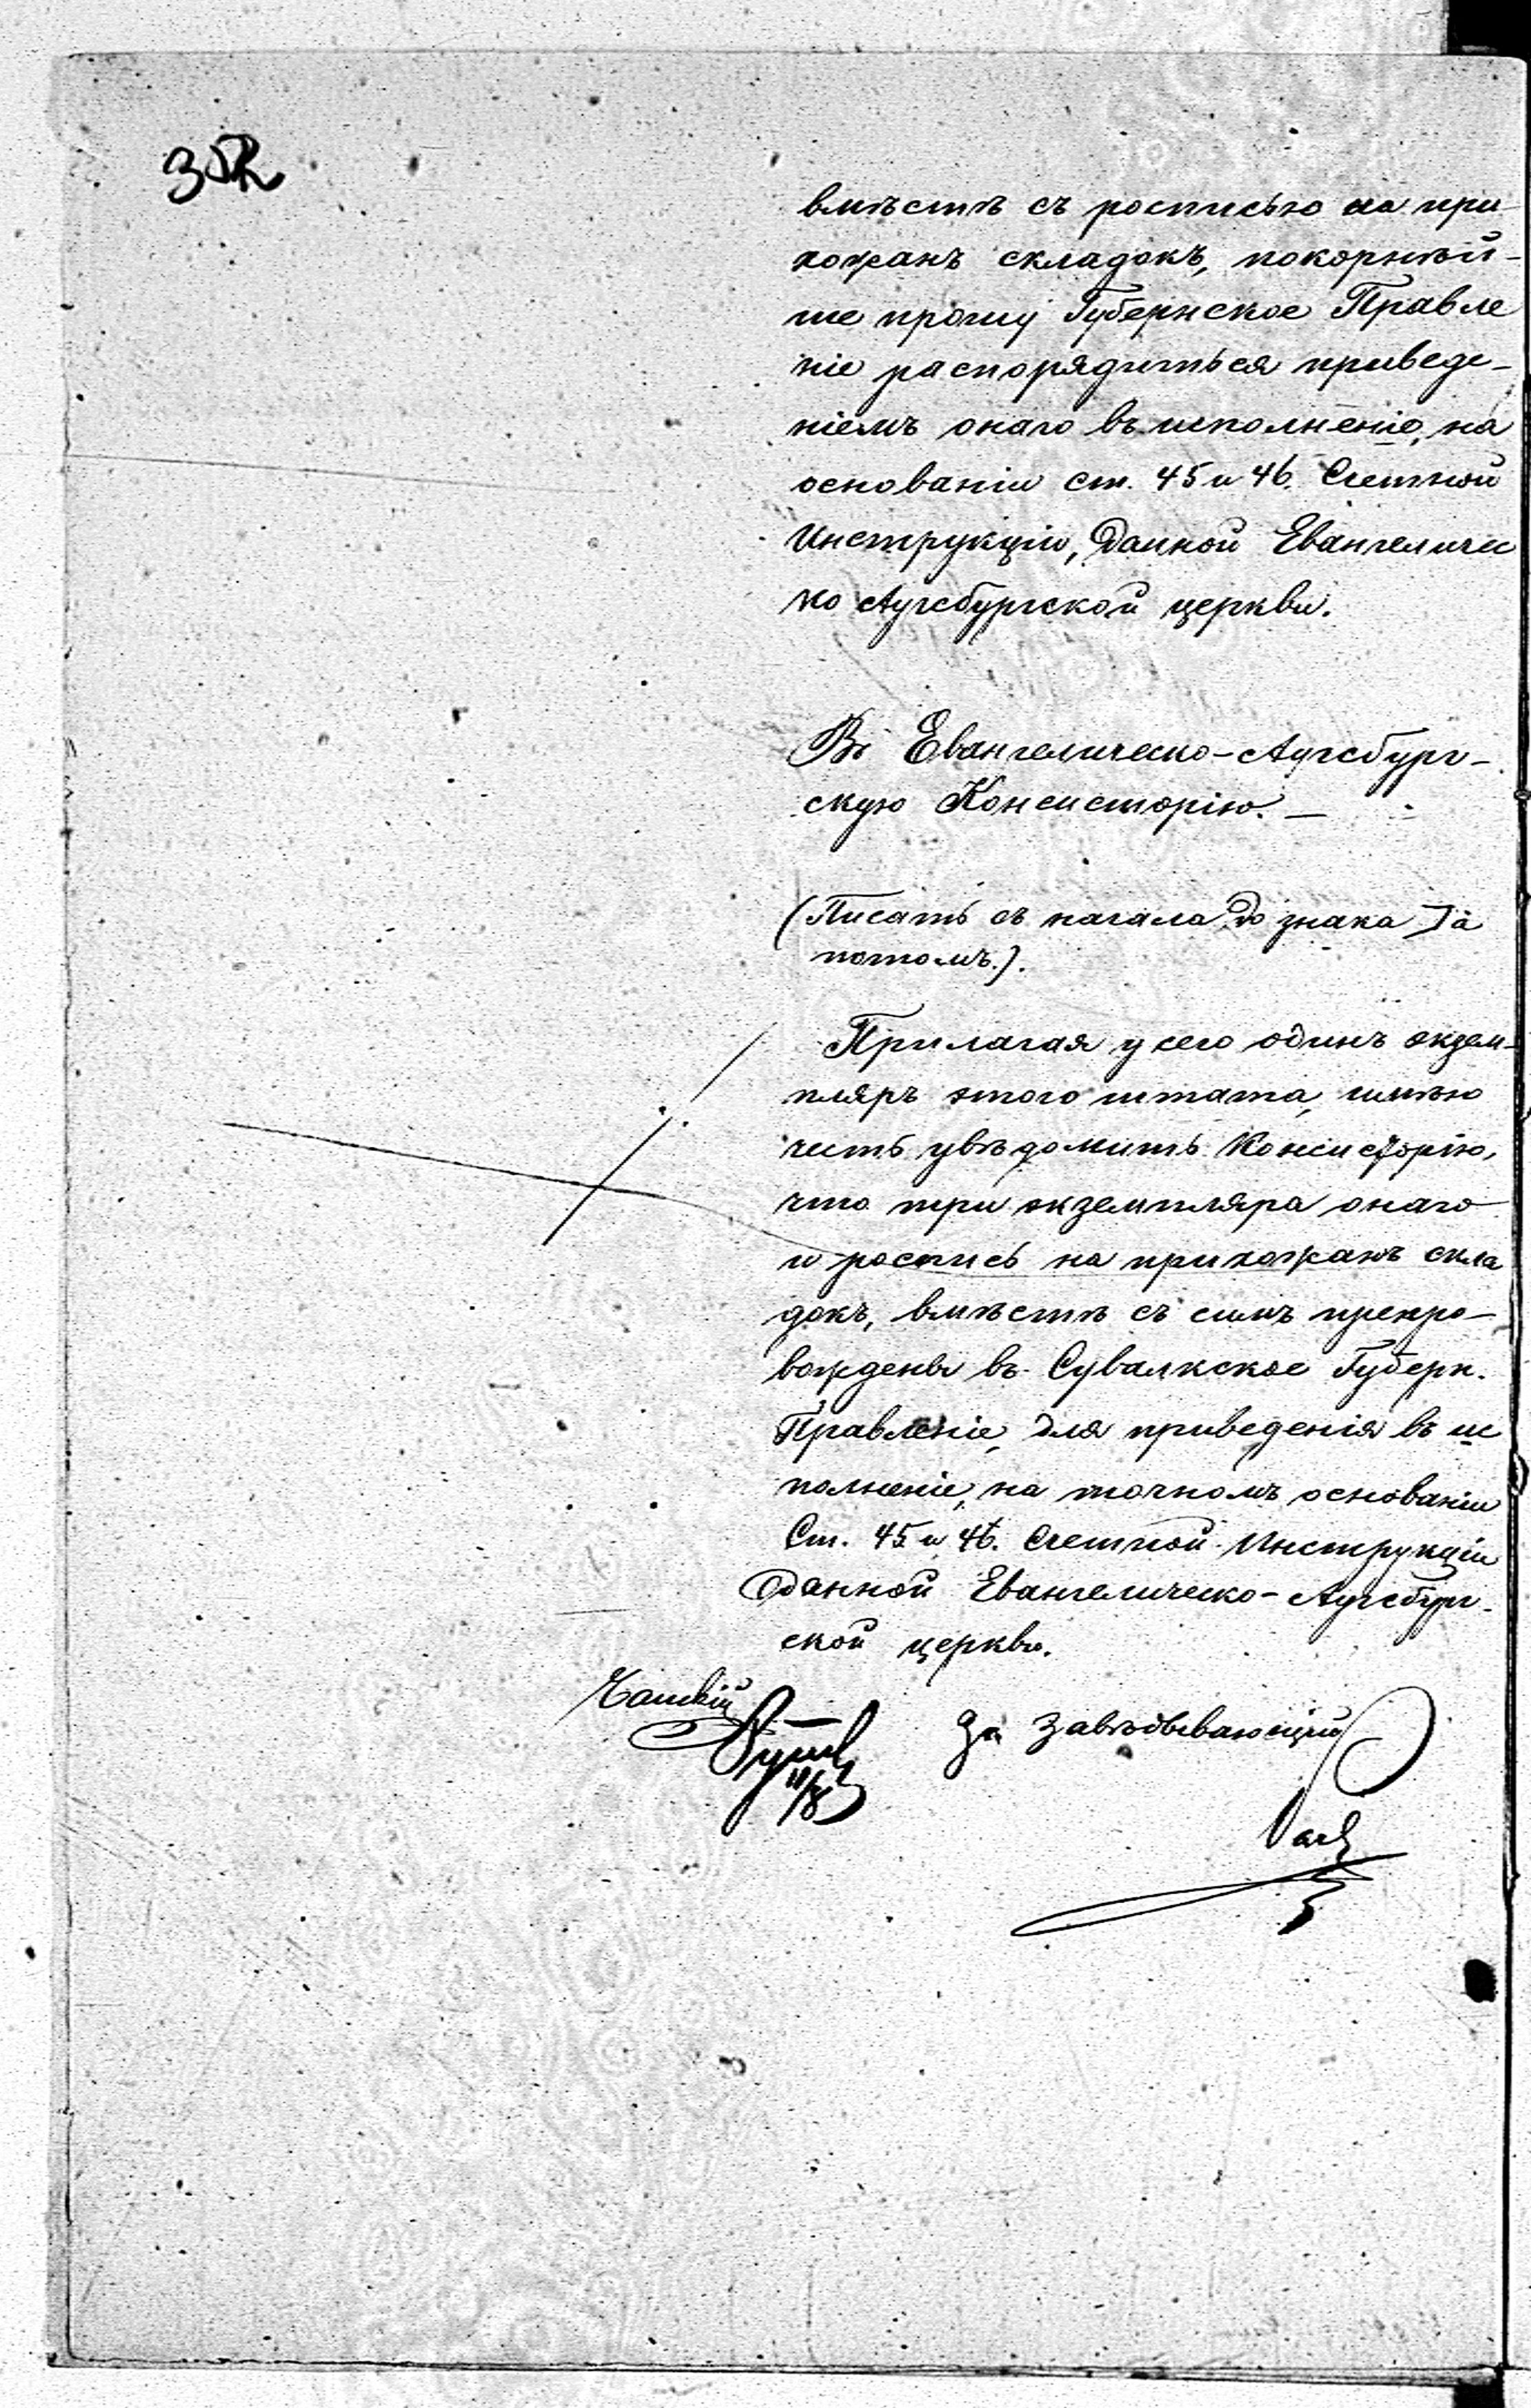 вмѣстѣ съ росписью на при-
хожанъ складокъ, покорнѣй-
ше прошу Губернское Правле
ніе распорядиться приведе-
ніемъ онаго въ исполненіе, на
основаніи ст. 45 и 46. Счетной
Инструкціи, данной Евангеличес
ко Аугсбургской церкви.
Въ Евангелическо-Аугсбург-
скую Консисторію. —
(Писать съ начала до знака ] а
потомъ.).
Прилагая у сего одинъ экзем-
пляръ этого штата, имѣю
честь увѣдомить Консисторію,
что три экземпляра онаго
и роспись на прихожанъ скла
докъ, вмѣстѣ съ симъ препро-
вождены въ Сувалкское Губерн.
Правленіе, для приведенія въ ис
полненіе, на точномъ основаніи
Ст. 45 и 46. Счетной Инструкціи
данной Евангелическо-Аугсбург-
ской церкви.
За Завѣдывающій